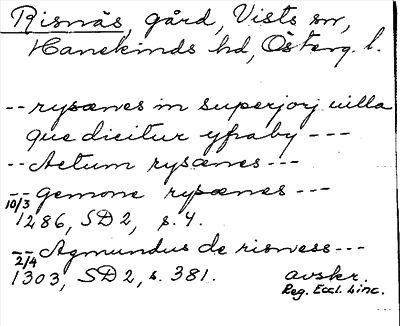 Risnäs, gård, Vists sn,
Hanekinds hd, Österg. l.
-- rysænes in superjorj uilla
que dicitur yfraby ---
-- Actum rysænes ---
-- gemone rysænes ---
10/3
1286, SD 2, s. 4.
-- Agmundus de risness ---
2/4
1303, SD 2, s. 381. avskr.
Reg. Eccl. Linc.